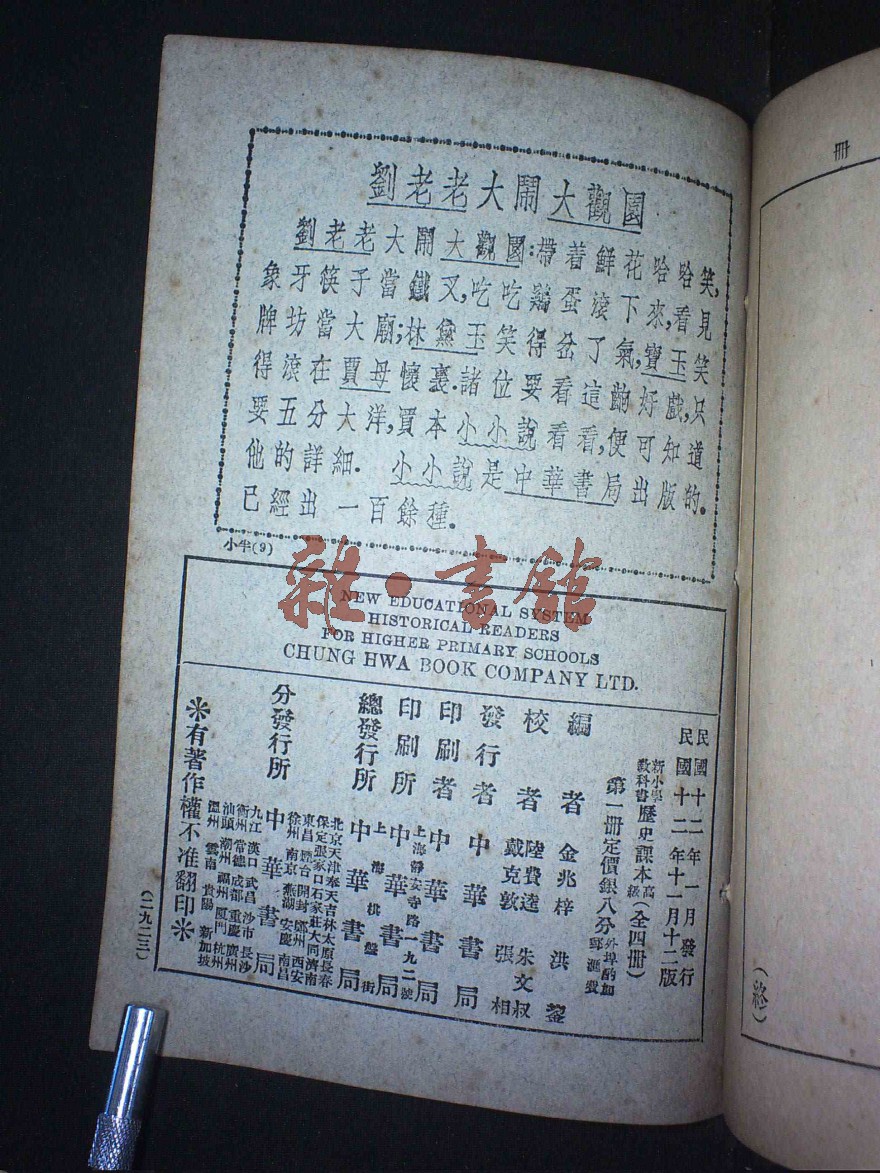 劉老老大鬧大觀園
劉老老大鬧大觀園:帶着鮮花哈哈笑,
象牙筷子當鐵叉,吃吃鷄蛋滾下來,看見
牌坊當大廟;林黛玉笑得岔了氣,寶玉笑
得滾在賈母懷裏.諸位要看這齣好戲,只
要五分大洋,買本小小說看看,便可知道
他的詳細. 小小說是中華書局出版的.
已經出一百餘種.
小半(9)
雜·書館
NEW EDUCATIONAL SYSTEM
HISTORICAL READERS
FOR HIGHER PRIMARY SCHOOLS
CHUNG HWA BOOK COMPANY LTD.
民國十二年一月發行
民國十二年十一月十二版
新小學教科書歷史課本高級(全四册)
第一册定價銀八分
外埠酌加郵滙費
編者 金兆梓 洪鋆
校者 陸費逵 朱文叔
戴克敦 張相
發行者 中華書局
印刷者 中華書局
印刷所 上海靜安寺路一九二號
中華書局
總發行所 上海棋盤街
中華書局
分發行所 中華書局
北京天津奉天吉林太原長春
保定張家口石家莊大同濟南
東昌煙台開封鄭州西安
徐州南京蕪湖安慶南昌
九江漢口武昌沙市長沙
衡州常德成都重慶廣州
汕頭潮州福州厦門杭州
溫州雲南貴陽新加坡
※有著作權不准翻印※
(二九二三)
册
(終)